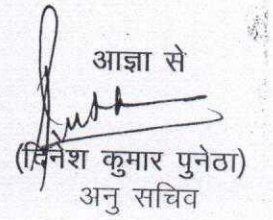 आज्ञा से
(दिनेश कुमार पुनेठा)
अनु सचिव